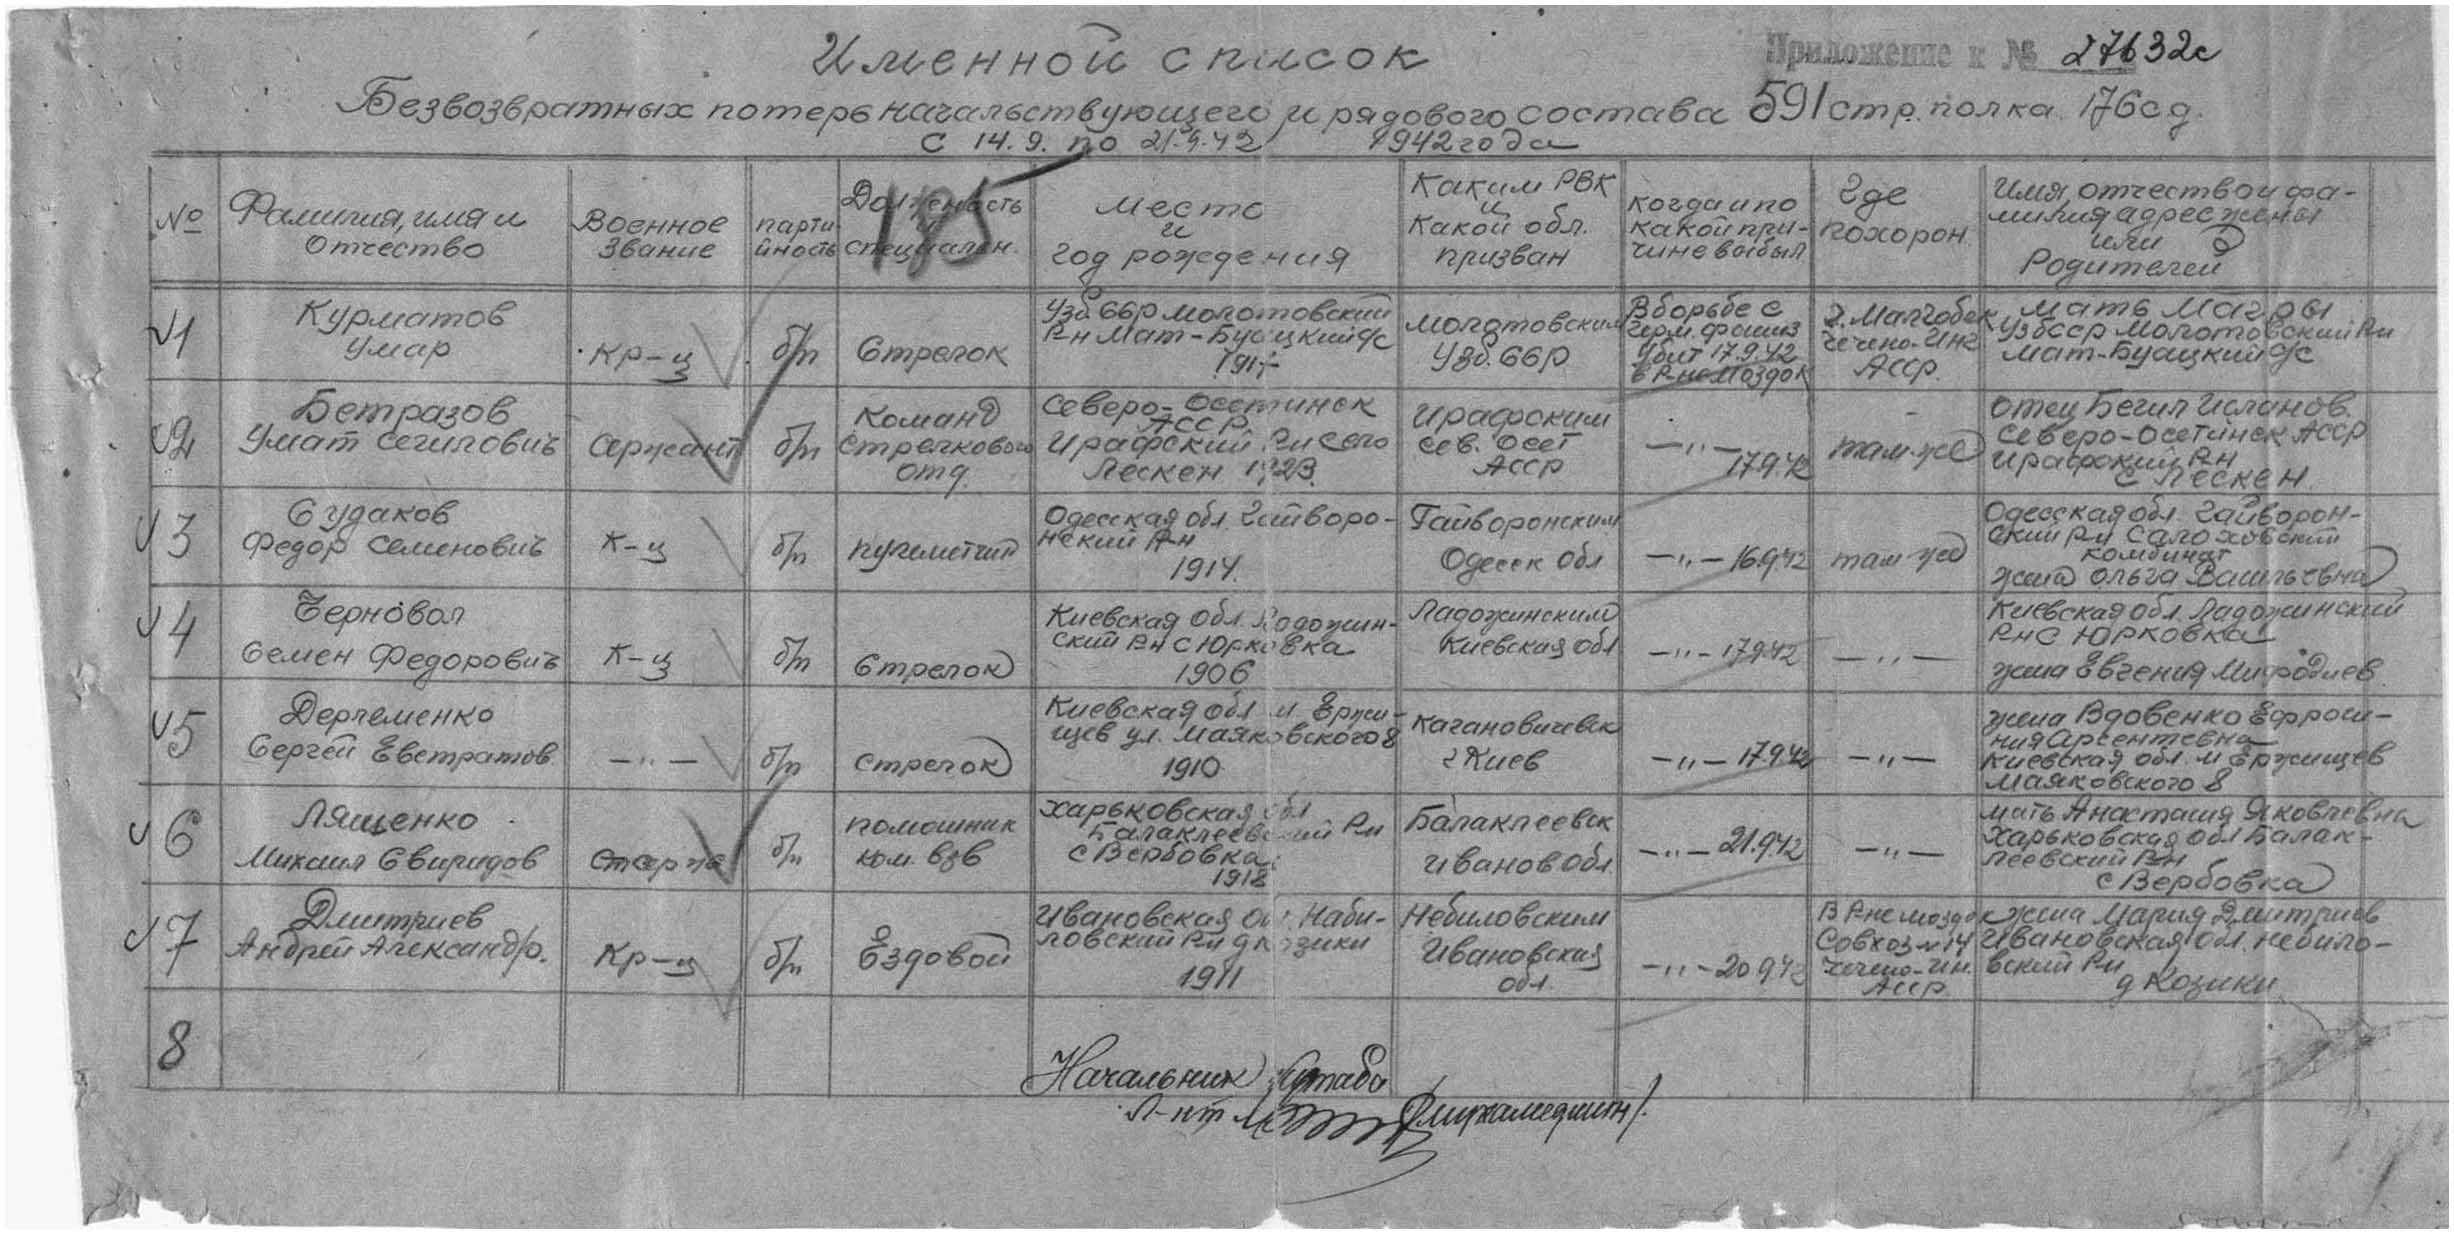 Именной список
Приложение к № 27632с
Безвозвратных потерь начальствующего и рядового состава 591 стр. полка 176 с д.
с 14.9. по 21.9.42 1942 года
185
№
Фамилия, имя и
Отчество
Военное
Звание
парти-
йность
Должность
и
специальн.
Место
и
год рождения
Каким РВК
и
Какой обл.
призван
когда и по
какой при-
чине выбыл
Где
похорон.
Имя, отчество и фа-
милия адрес жены
или
Родителей
1
Курматов
Умар
Кр-ц
б/п
Стрелок
Узб ССР молотовский
Р-н Мат-
1917
Молотовским
Узб. ССР
В борьбе с
герм. фашиз
Убит 17.9.42
в Р-не Моздок
г. Малгобек
Чечено-Инг
Асср.
Мать
Узбсср Молотовский Р-н
Мат-
2
Бетразов
Умат Сегилович
Сержант
б/п
Команд
Стрелкового
отд.
Северо-Осетинск
АССР
Ирафский Р-н село
Лескен 1923.
Ирафским
Сев. Осет
Асср
-"- 17.9.42
там-же
отец Бегил Исланов.
Северо-Осетинск Асср
Ирафский Р-н
с Лескен.
3
Судаков
Федор Семенович
К-ц
б/п
пулеметчик
Одесская обл. Гайворо-
нский Р-н
1914.
Гайворонским
Одесск обл
-"- 16.9.42
там же
Одесская обл. Гайворон-
ский Р-н Салоховский
комбинат
жена Ольга Васильевна
4
Черновол
Семен Федорович
К-ц
б/п
Стрелок
Киевская обл. Ладожин-
ский Р-н с Юрковка
1906
Ладожинским
Киевская обл
-"- 17.9.42
-"-
Киевская обл Ладожинский
Р-н с Юрковка
жена Евгения Мифодиев.
5
Дерчеменко
Сергей Евстратов.
-"-
б/п
стрелок
Киевская обл м Ержи-
щев ул. Маяковского 8
1910
Кагановическ
г Киев
-"- 17.9.42
-"-
жена Вдовенко Ефроси-
ния Арсентевна
Киевская обл. м Ержищев
Маяковского 8
6
Лященко
Михаил Свиридов
б/п
помошник
ком. взв
Харьковская обл
Балаклеевский Р-н
с Вербовка.
1918
Балаклеевск
Иванов обл.
-"- 21.9.42
-"-
мать Анастасия Яковлевна
Харьковская обл Балак-
леевский Р-н
с Вербовка
7
Дмитриев
Андрей Александр.
Кр-ц
б/п
Ездовой
Ивановская обл Наби-
ловский Р-н д Козики
1911
Небиловским
Ивановская
обл.
-"- 20.9.42
В Р-не Моздо
Совхоз №14
Чечено-Ин.
Асср.
к жена Мария Дмитриев
Ивановская обл. небило-
вский Р-н
д Козики
8
Начальник Штаба
Л-нт